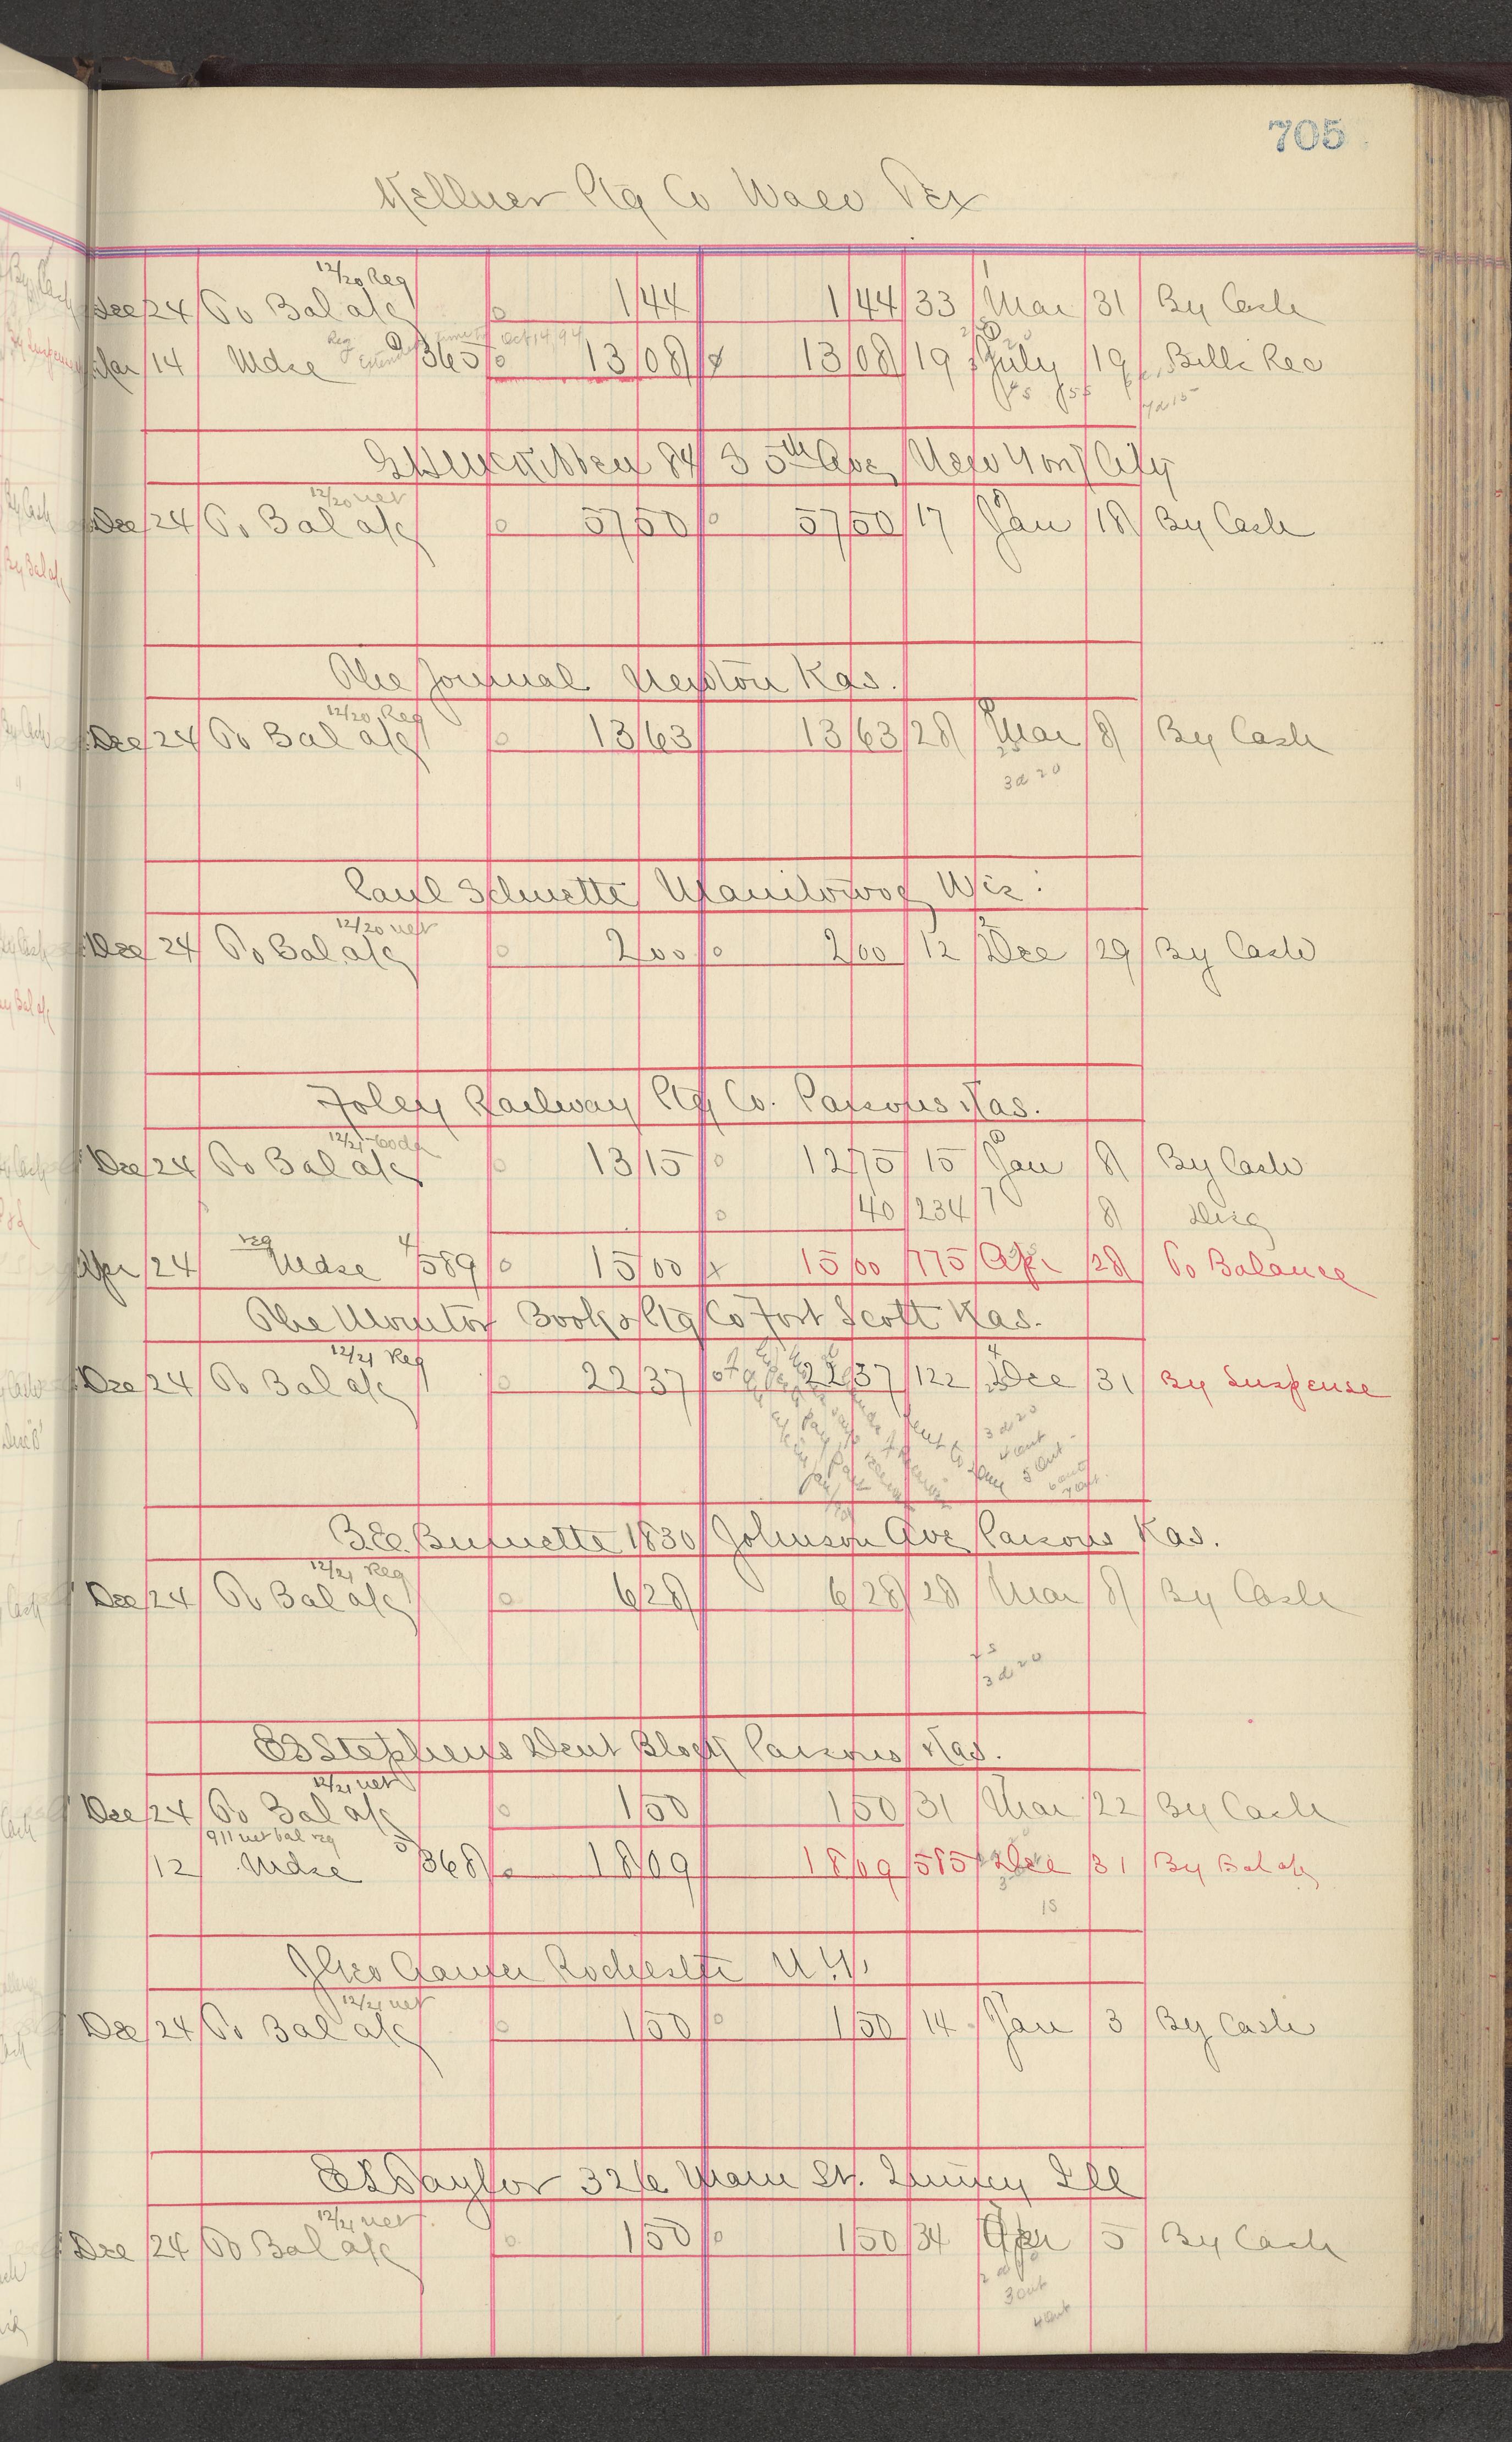 705
Kellner Ptg Co Waco Tex
12/20 Reg
Dec 24 To Bal a/c 1 44 1 44 33 Mar 31 By Cash
Reg Oct 14, 94
Mar 14 Mdse 365 13 08 13 08 19 July 19 Bills Rec
7 d 15
84 5 5th Ave New York City
12/20 net
Dec 24 To Bal a/c 57 50 57 50 17 Jan 18 By Cash
The Journal Newton Kas.
12/20 Reg
Dec 24 To Bal a/c 13 63 13 63 28 Mar 8 By Cash
3 d 20
Paul Schuette Manitowoc Wis.
12/20 net
Dec 24 To Bal a/c 2 00 2 00 12 Dec 29 By Cash
Foley Railway Ptg Co. Parsons Kas.
12/21
Dec 24 To Bal a/c 13 15 12 75 15 Jan 8 By Cash
40 234 8 Disc
reg
Apr 24 Mdse 4/589 15 00 15 00 775 Apr 28 To Balance
The Monitor Book & Ptg Co Fort Scott Kas.
12/21 Reg
Dec 24 To Bal a/c 22 37 22 37 122 Dec 31 By Suspense
3 d 20
4 out
5 out
6 out
7 out
B.E. Burnette 1830 Johnson Ave Parsons Kas.
12/21 Reg
Dec 24 To Bal a/c 6 28 6 28 28 Mar 8 By Cash
3 d 20
ES Stephens Dent Block Parsons Kas.
12/21 net
Dec 24 To Bal a/c 1 50 1 50 31 Mar 22 By Cash
911 net bal reg
12 Mdse 5/368 18 09 18 09 585 Dec 31 By Bal a/c
15
Rochester N.Y.
12/21 net
Dec 24 To Bal a/c 1 50 1 50 14 Jan 3 By Cash
ES Taylor 326 Main St. Quincy Ill
12/21 net
Dec 24 To Bal a/c 1 50 1 50 34 Apr 5 By Cash
3 out
4 out